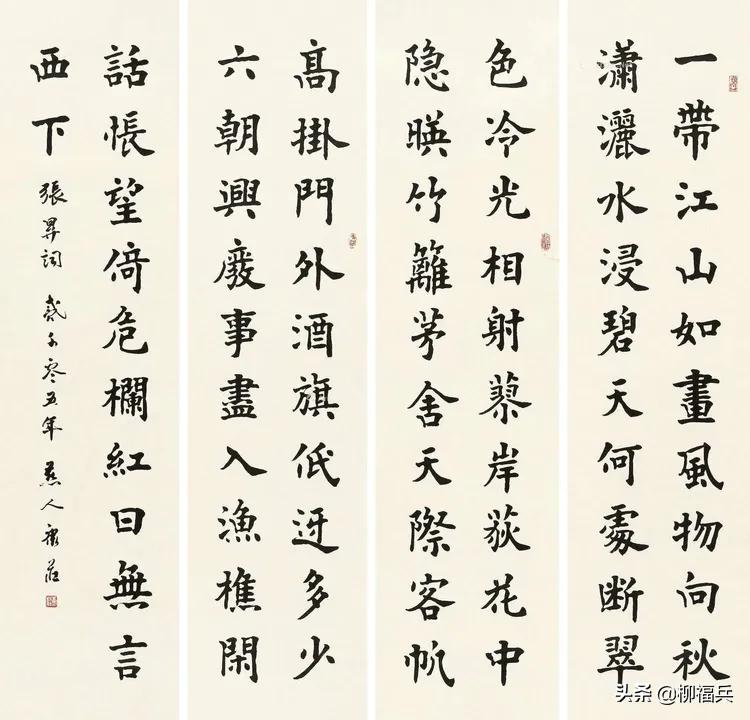 一帶江山如畫風物向秋
瀟灑水浸碧天何處断翠
色冷光相射蓼岸荻花中
隐暎竹籬茅舍天際客帆
高掛門外酒旗低迓多少
六朝興廢事盡入漁樵閑
話悵望倚危欄紅日無言
西下 張昇詞 贰千零五年 燕人康莊
头条 @柳福兵